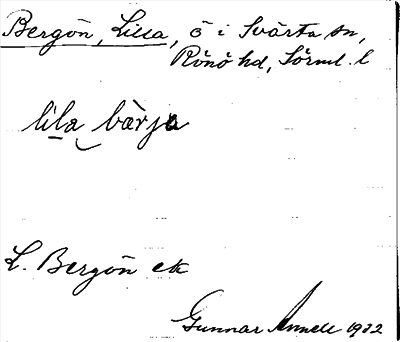 Bergön, Lilla, ö i Svärta sn,
Rönö hd, Sörml. l
lila bärja
L. Bergön ek
Gunnar Annell 1932